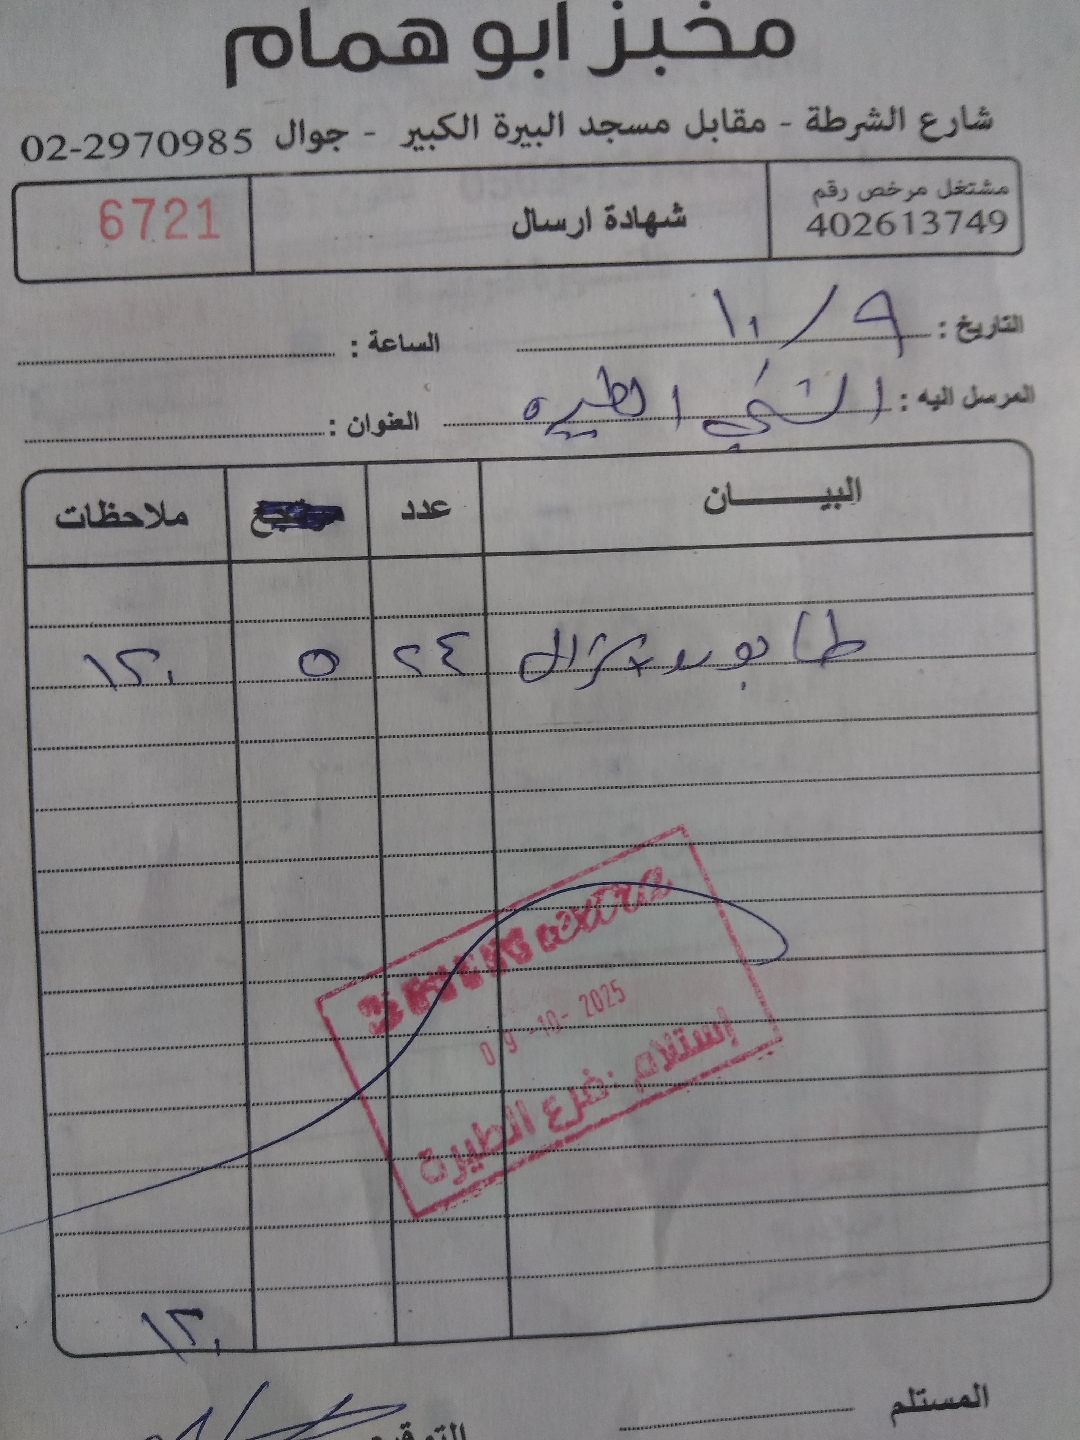 مخبز ابو همام
شارع الشرطة - مقابل مسجد البيرة الكبير - جوال 02-2970985
مشتغل مرخص رقم
402613749
شهادة ارسال
6721
التاريخ : ٩/١٠
الساعة :
المرسل اليه : الشني الطيره
العنوان :
البيــــــان عدد ملاحظات
طابون ٢٤ ٥ ١٢٠
09-10-2025
إستلام . فرع الطيرة
١٢٠
المستلم
التوقيع